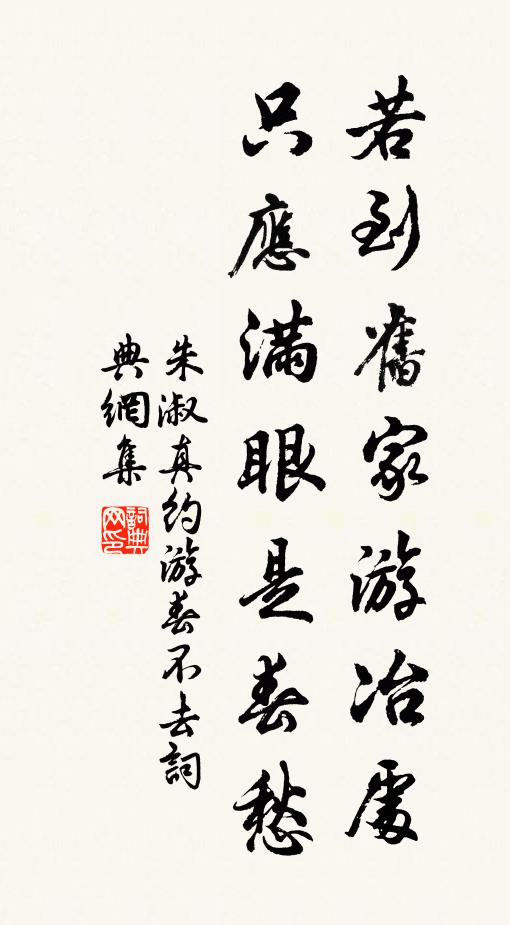 若到舊家游冶處
只應滿眼是春愁
朱淑真約游春不去詞
典網集
詞典网印